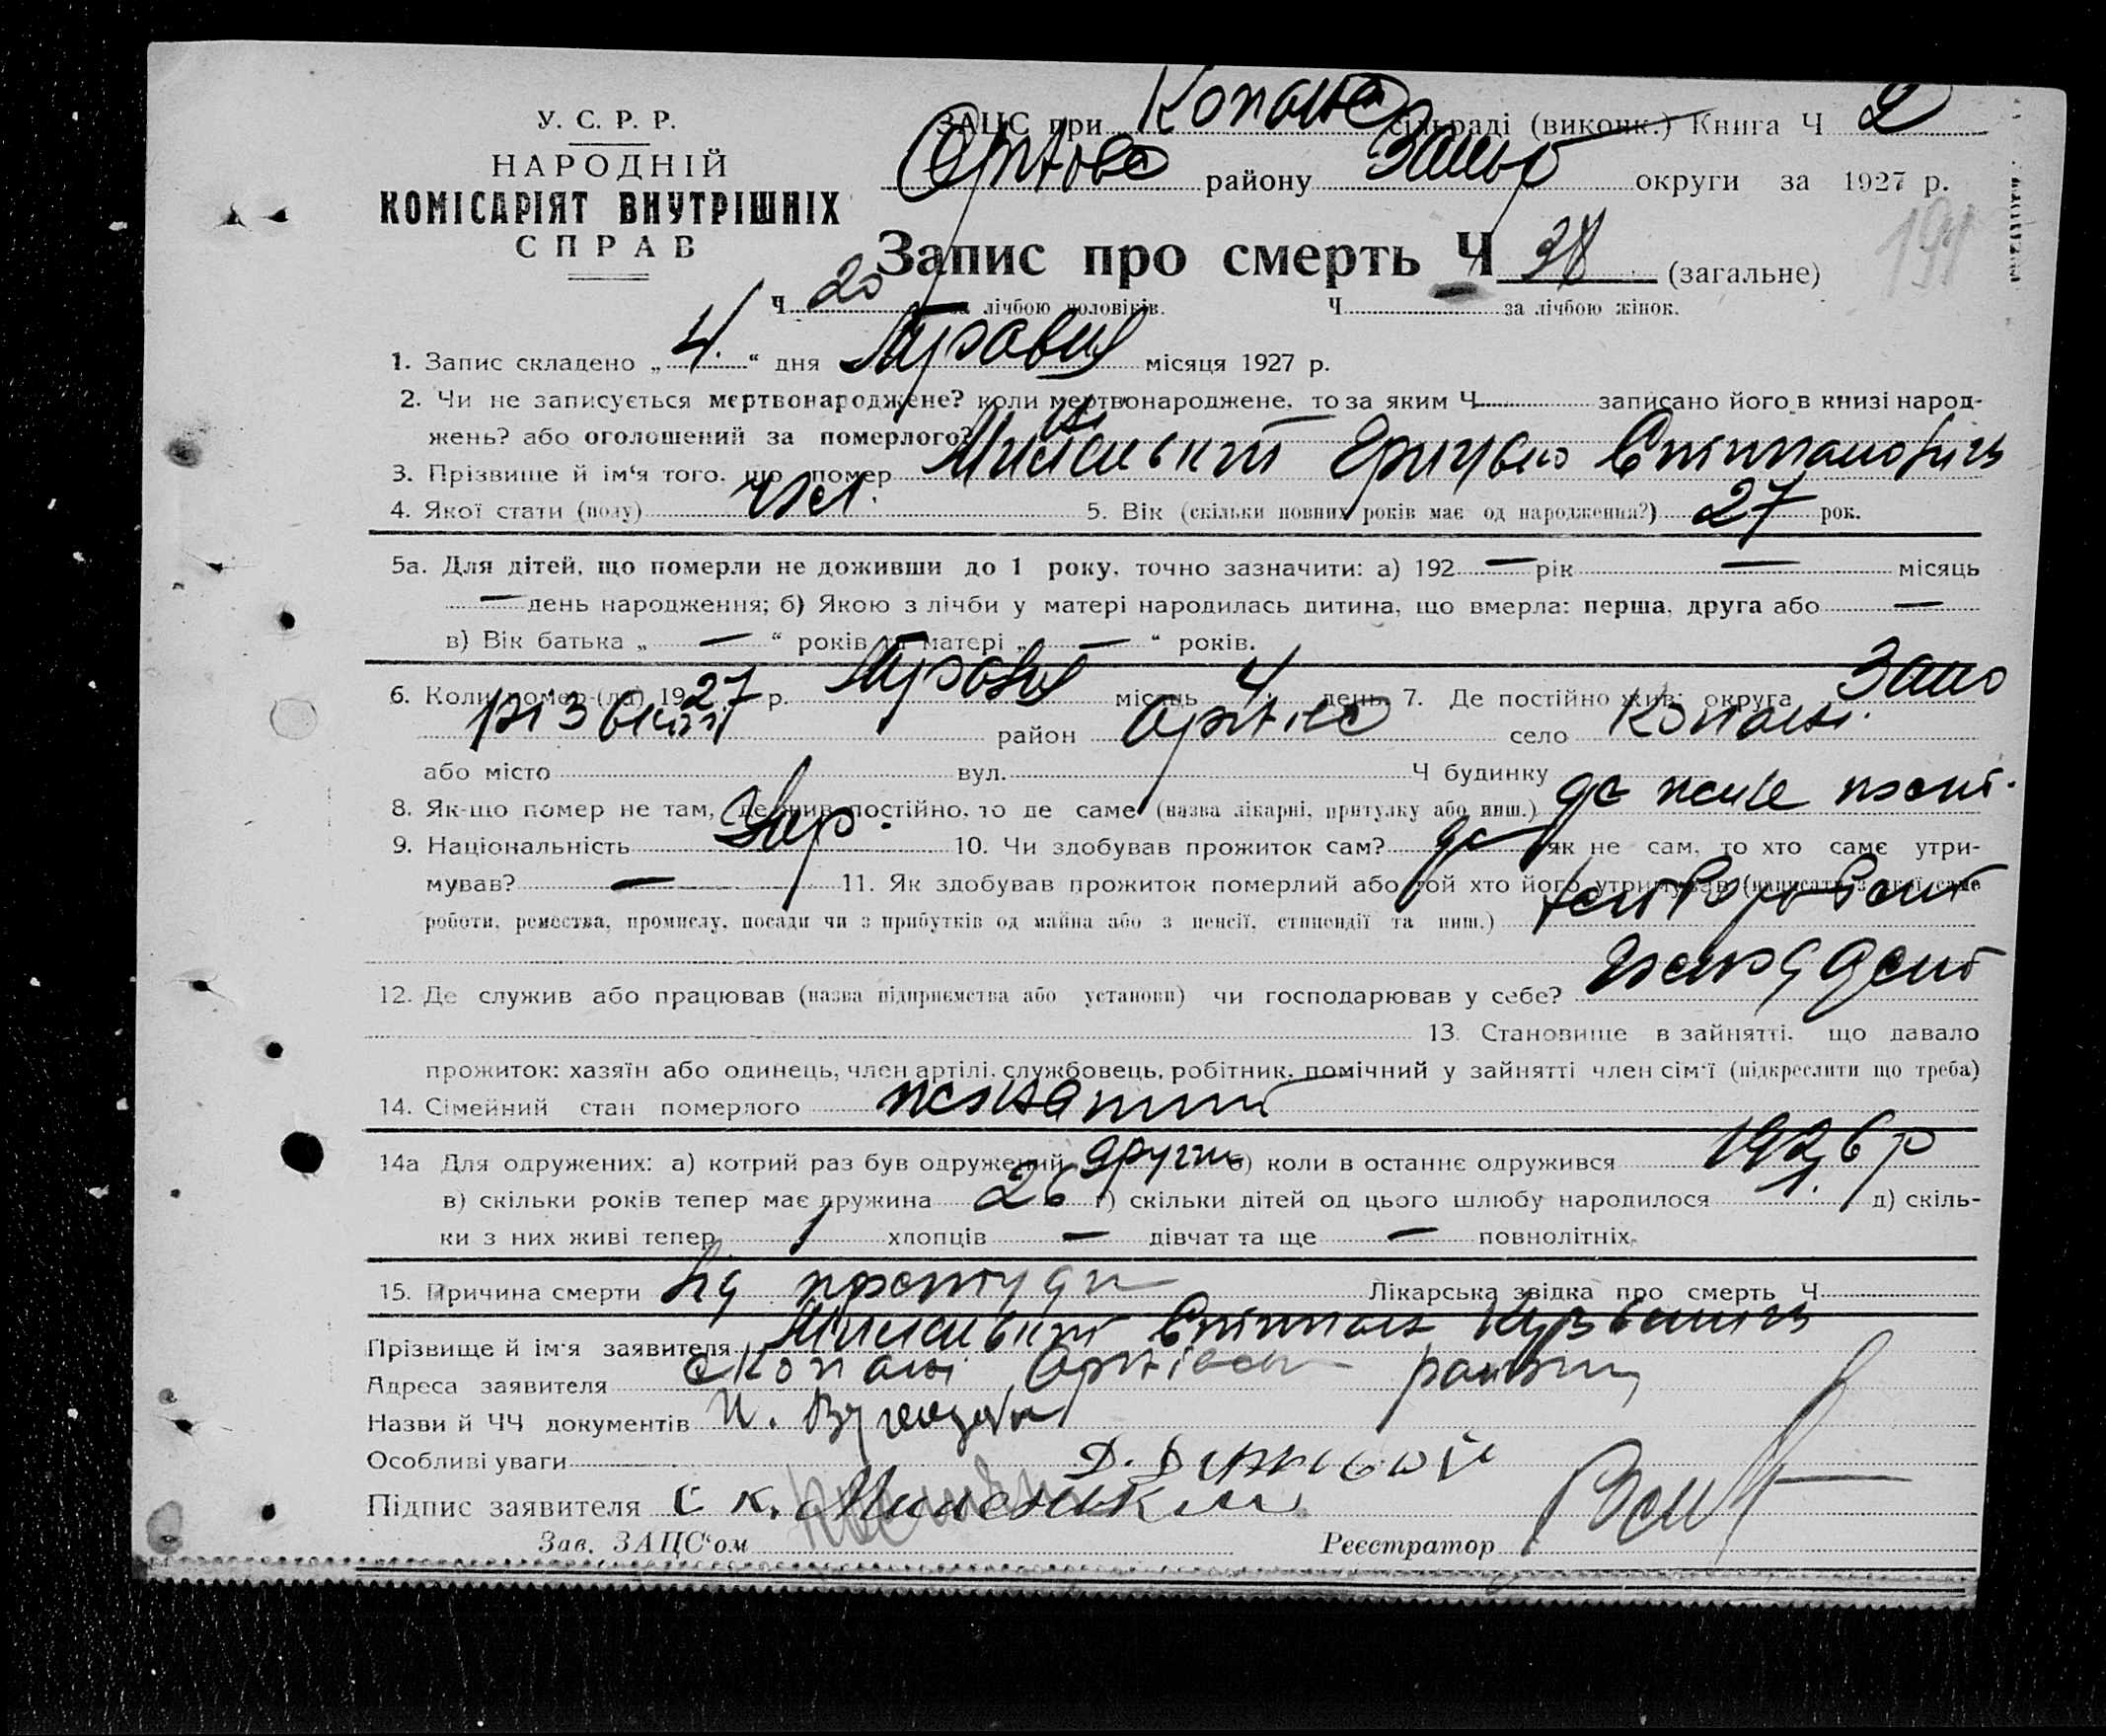 У. С. Р. Р.
НАРОДНІЙ
КОМІСАРІЯТ ВНУТРІШНІХ
СПРАВ
ЗАЦС при Копане сільраді (виконк.) Книга Ч 2
району округи за 1927 р.
191
Запис про смерть Ч 38 (загальне)
Ч 20 за лічбою чоловіків. Ч за лічбою жінок.
1. Запис складено „ 4. “ дня Травня місяця 1927 р.
2. Чи не записується мертвонароджене? коли мертвонароджене, то за яким Ч записано його в книзі народ-
жень? або оголошений за померлого? ні
3. Прізвище й ім‘я того, що помер
4. Якої стати (полу) чол. 5. Вік (скільки повних років має од народження?) 27 рок.
5а. Для дітей, що померли не доживши до 1 року, точно зазначити: а) 192 — рік — місяць
— день народження; б) Якою з лічби у матері народилась дитина, що вмерла: перша, друга або —
в) Вік батька „ — “ років та матері „ — “ років.
6. Коли помер-(ла) 1927 р. Травня місяць 4 день 7. Де постійно жив: округа Запо
різький район село Копані.
або місто вул. Ч будинку
8. Як-що помер не там, де жив постійно, то де саме (назва лікарні, притулку або инш.) де живе пост.
9. Національність Укр. 10. Чи здобував прожиток сам? да як не сам, то хто саме утри-
мував? — 11. Як здобував прожиток померлий або той хто його утримував (написати з якої саме
роботи, ремества, промислу, посади чи з прибутків од майна або з пенсії, стипендії та инш.)
12. Де служив або працював (назва підприємства або установи) чи господарював у себе?
13. Становище в зайнятті, що давало
прожиток: хазяїн або одинець, член артілі, службовець, робітник, помічний у зайнятті член сім‘ї (підкреслити що треба)
14. Сімейний стан померлого жонатий
14а Для одружених: а) котрий раз був одружений другий б) коли в останнє одружився 1926 р
в) скільки років тепер має дружина 26 г) скільки дітей од цього шлюбу народилося 1. д) скіль-
ки з них живі тепер 1 хлопців — дівчат та ще — повнолітніх.
15. Причина смерти Від простуди Лікарська звідка про смерть Ч
Прізвище й ім‘я заявителя
Адреса заявителя с Копані району
Назви й ЧЧ документів
Особливі уваги
Підпис заявителя
Зав. ЗАЦС‘ом Реєстратор